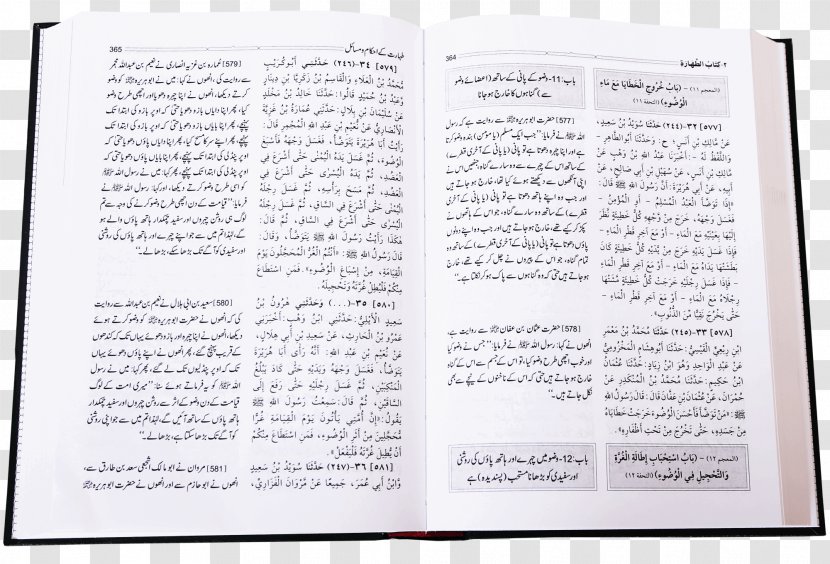 ٢- كتاب الطهارة
364
(المعجم ١١) - (بَابُ خُرُوجِ الْخَطَايَا مَعَ مَاءِ
الْوُضُوءِ) (التحفة ١١)
[٥٧٧] ٣٢-(٢٤٤) حَدَّثَنَا سُوَيْدُ بْنُ سَعِيدٍ،
عَنْ مَالِكِ بْنِ أَنَسٍ؛ ح: وَحَدَّثَنَا أَبُو الطَّاهِرِ -
وَاللَّفْظُ لَهُ -: أَخْبَرَنَا عَبْدُ اللهِ بْنُ وَهْبٍ عَنْ
مَالِكِ بْنِ أَنَسٍ، عَنْ سُهَيْلِ بْنِ أَبِي صَالِحٍ، عَنْ
أَبِيهِ، عَنْ أَبِي هُرَيْرَةَ: أَنَّ رَسُولَ اللهِ ﷺ قَالَ:
«إِذَا تَوَضَّأَ الْعَبْدُ الْمُسْلِمُ - أَوِ الْمُؤْمِنُ -
فَغَسَلَ وَجْهَهُ، خَرَجَ مِنْ وَجْهِهِ كُلُّ خَطِيئَةٍ نَظَرَ
إِلَيْهَا بِعَيْنَيْهِ مَعَ الْمَاءِ - أَوْ مَعَ آخِرِ قَطْرِ الْمَاءِ -،
فَإِذَا غَسَلَ يَدَيْهِ خَرَجَ مِنْ يَدَيْهِ كُلُّ خَطِيئَةٍ كَانَ
بَطَشَتْهَا يَدَاهُ مَعَ الْمَاءِ - أَوْ مَعَ آخِرِ قَطْرِ الْمَاءِ -
فَإِذَا غَسَلَ رِجْلَيْهِ خَرَجَتْ كُلُّ خَطِيئَةٍ مَشَتْهَا
رِجْلَاهُ مَعَ الْمَاءِ - أَوْ مَعَ آخِرِ قَطْرِ الْمَاءِ -
حَتَّى يَخْرُجَ نَقِيًّا مِنَ الذُّنُوبِ».
[٥٧٨] ٣٣-(٢٤٥) حَدَّثَنَا مُحَمَّدُ بْنُ مَعْمَرِ
ابْنِ رِبْعِيٍّ الْقَيْسِيُّ: حَدَّثَنَا أَبُو هِشَامٍ الْمَخْزُومِيُّ
عَنْ عَبْدِ الْوَاحِدِ وَهُوَ ابْنُ زِيَادٍ: حَدَّثَنَا عُثْمَانُ
ابْنُ حَكِيمٍ: حَدَّثَنَا مُحَمَّدُ بْنُ الْمُنْكَدِرِ عَنْ
حُمْرَانَ، عَنْ عُثْمَانَ بْنِ عَفَّانَ قَالَ: قَالَ رَسُولُ اللهِ
ﷺ: «مَنْ تَوَضَّأَ فَأَحْسَنَ الْوُضُوءَ خَرَجَتْ خَطَايَاهُ
مِنْ جَسَدِهِ، حَتَّى تَخْرُجَ مِنْ تَحْتِ أَظْفَارِهِ».
(المعجم ١٢) - (بَابُ اسْتِحْبَابِ إِطَالَةِ الْغُرَّةِ
وَالتَّحْجِيلِ فِي الْوُضُوءِ) (التحفة ١٢)
باب: 11- وضو کے پانی کے ساتھ (اعضائے وضو
سے) گناہوں کا خارج ہو جانا
[577] حضرت ابوہریرہ ؓ سے روایت ہے کہ رسول
اللہ ﷺ نے فرمایا: ”جب ایک مسلم (یا مومن) بندہ وضو کرتا
ہے اور اپنا چہرہ دھوتا ہے تو پانی (یا پانی کے آخری قطرے)
کے ساتھ اس کے چہرے سے وہ سارے گناہ، جنھیں اس نے
اپنی آنکھوں سے دیکھتے ہوئے کیا تھا، خارج ہو جاتے ہیں
اور جب وہ اپنے ہاتھ دھوتا ہے تو پانی (یا پانی کے آخری
قطرے) کے ساتھ وہ سارے گناہ، جو اس کے ہاتھوں نے
پکڑ کر کیے تھے، خارج ہو جاتے ہیں اور جب وہ اپنے دونوں
پاؤں دھوتا ہے تو پانی (یا پانی کے آخری قطرے) کے ساتھ وہ
تمام گناہ، جو اس کے پیروں نے چل کر کیے تھے، خارج
ہو جاتے ہیں حتی کہ وہ گناہوں سے پاک ہو کر نکلتا ہے۔“
[578] حضرت عثمان بن عفان ؓ سے روایت ہے،
انھوں نے کہا: رسول اللہ ﷺ نے فرمایا: ”جس نے وضو کیا
اور خوب اچھی طرح وضو کیا، تو اس کے جسم سے اس کے گناہ
خارج ہو جاتے ہیں حتی کہ اس کے ناخنوں کے نیچے سے بھی
نکل جاتے ہیں۔“
باب: 12- وضو میں چہرے اور ہاتھ پاؤں کی روشنی
اور سفیدی کو بڑھانا مستحب (پسندیدہ) ہے
طہارت کے احکام و مسائل
365
[٥٧٩] ٣٤-(٢٤٦) حَدَّثَنِي أَبُو كُرَيْبٍ
مُحَمَّدُ بْنُ الْعَلَاءِ وَالْقَاسِمُ بْنُ زَكَرِيَّا بْنِ دِينَارٍ
وَعَبْدُ بْنُ حُمَيْدٍ قَالُوا: حَدَّثَنَا خَالِدُ بْنُ مَخْلَدٍ
عَنْ سُلَيْمَانَ بْنِ بِلَالٍ: حَدَّثَنِي عُمَارَةُ بْنُ غَزِيَّةَ
الْأَنْصَارِيُّ عَنْ نُعَيْمِ بْنِ عَبْدِ اللهِ الْمُجْمِرِ قَالَ:
رَأَيْتُ أَبَا هُرَيْرَةَ يَتَوَضَّأُ، فَغَسَلَ وَجْهَهُ فَأَسْبَغَ
الْوُضُوءَ، ثُمَّ غَسَلَ يَدَهُ الْيُمْنَى حَتَّى أَشْرَعَ فِي
الْعَضُدِ، ثُمَّ يَدَهُ الْيُسْرَى حَتَّى أَشْرَعَ فِي
الْعَضُدِ، ثُمَّ مَسَحَ بِرَأْسِهِ، ثُمَّ غَسَلَ رِجْلَهُ
الْيُمْنَى حَتَّى أَشْرَعَ فِي السَّاقِ، ثُمَّ غَسَلَ رِجْلَهُ
الْيُسْرَى حَتَّى أَشْرَعَ فِي السَّاقِ، ثُمَّ قَالَ:
هٰكَذَا رَأَيْتُ رَسُولَ اللهِ ﷺ يَتَوَضَّأُ، وَقَالَ:
قَالَ رَسُولُ اللهِ ﷺ: «أَنْتُمُ الْغُرُّ الْمُحَجَّلُونَ يَوْمَ
الْقِيَامَةِ، مِنْ إِسْبَاغِ الْوُضُوءِ» فَمَنِ اسْتَطَاعَ
مِنْكُمْ فَلْيُطِلْ غُرَّتَهُ وَتَحْجِيلَهُ.
[٥٨٠] ٣٥-(...) وَحَدَّثَنِي هَارُونُ بْنُ
سَعِيدٍ الْأَيْلِيُّ: حَدَّثَنِي ابْنُ وَهْبٍ: أَخْبَرَنِي
عَمْرُو بْنُ الْحَارِثِ، عَنْ سَعِيدِ بْنِ أَبِي هِلَالٍ،
عَنْ نُعَيْمِ بْنِ عَبْدِ اللهِ: أَنَّهُ رَأَى أَبَا هُرَيْرَةَ
يَتَوَضَّأُ، فَغَسَلَ وَجْهَهُ وَيَدَيْهِ حَتَّى كَادَ يَبْلُغُ
الْمَنْكِبَيْنِ، ثُمَّ غَسَلَ رِجْلَيْهِ حَتَّى رَفَعَ إِلَى
السَّاقَيْنِ، ثُمَّ قَالَ: سَمِعْتُ رَسُولَ اللهِ ﷺ
يَقُولُ: «إِنَّ أُمَّتِي يَأْتُونَ يَوْمَ الْقِيَامَةِ غُرًّا
مُحَجَّلِينَ مِنْ أَثَرِ الْوُضُوءِ، فَمَنِ اسْتَطَاعَ مِنْكُمْ
أَنْ يُطِيلَ غُرَّتَهُ فَلْيَفْعَلْ».
[٥٨١] ٣٦-(٢٤٧) حَدَّثَنَا سُوَيْدُ بْنُ سَعِيدٍ
وَابْنُ أَبِي عُمَرَ، جَمِيعًا عَنْ مَرْوَانَ الْفَزَارِيِّ،
[579] عمارہ بن غزیہ انصاری نے نعیم بن عبداللہ مجمر
سے روایت کی، انھوں نے کہا: میں نے ابوہریرہ ؓ کو وضو
کرتے دیکھا، انھوں نے اپنا چہرہ دھویا اور اچھی طرح وضو
کیا، پھر اپنا دایاں بازو دھویا حتی کہ اوپر بازو کی ابتدا تک
پہنچے، پھر اپنا بایاں بازو دھویا حتی کہ اوپر بازو کی ابتدا تک
پہنچے، پھر اپنے سر کا مسح کیا، پھر اپنا دایاں پاؤں دھویا حتی کہ
اوپر پنڈلی کی ابتدا تک پہنچے، پھر اپنا بایاں پاؤں دھویا حتی کہ
اوپر پنڈلی کی ابتدا تک پہنچے، پھر کہا: میں نے رسول اللہ ﷺ
کو اسی طرح وضو کرتے دیکھا، اور کہا: رسول اللہ ﷺ نے
فرمایا: ”قیامت کے دن اچھی طرح وضو کرنے کی وجہ سے تم
لوگ ہی روشن چہروں اور سفید چمکدار ہاتھ پاؤں والے ہو
گے، لہٰذا تم میں سے جو اپنے چہرے اور ہاتھ پاؤں کی روشنی
اور سفیدی کو آگے تک بڑھا سکے، بڑھا لے۔“
[580] سعید بن ابی ہلال نے نعیم بن عبداللہ سے روایت
کی کہ انھوں نے حضرت ابوہریرہ ؓ کو وضو کرتے ہوئے
دیکھا، انھوں نے اپنا چہرہ اور بازو دھوئے یہاں تک کہ کندھوں
کے قریب پہنچ گئے، پھر انھوں نے اپنے پاؤں دھوئے یہاں
تک کہ اوپر پنڈلیوں تک لے گئے، پھر کہا: میں نے رسول
اللہ ﷺ کو یہ فرماتے ہوئے سنا: ”میری امت کے لوگ
قیامت کے دن وضو کے اثر سے روشن چہروں اور سفید چمکدار
ہاتھ پاؤں کے ساتھ آئیں گے، لہٰذا تم میں سے جو اپنی روشنی
کو آگے تک بڑھا سکتا ہے، بڑھا لے۔“
[581] مروان نے ابو مالک اشجعی سعد بن طارق سے،
انھوں نے ابو حازم سے اور انھوں نے حضرت ابوہریرہ ؓ